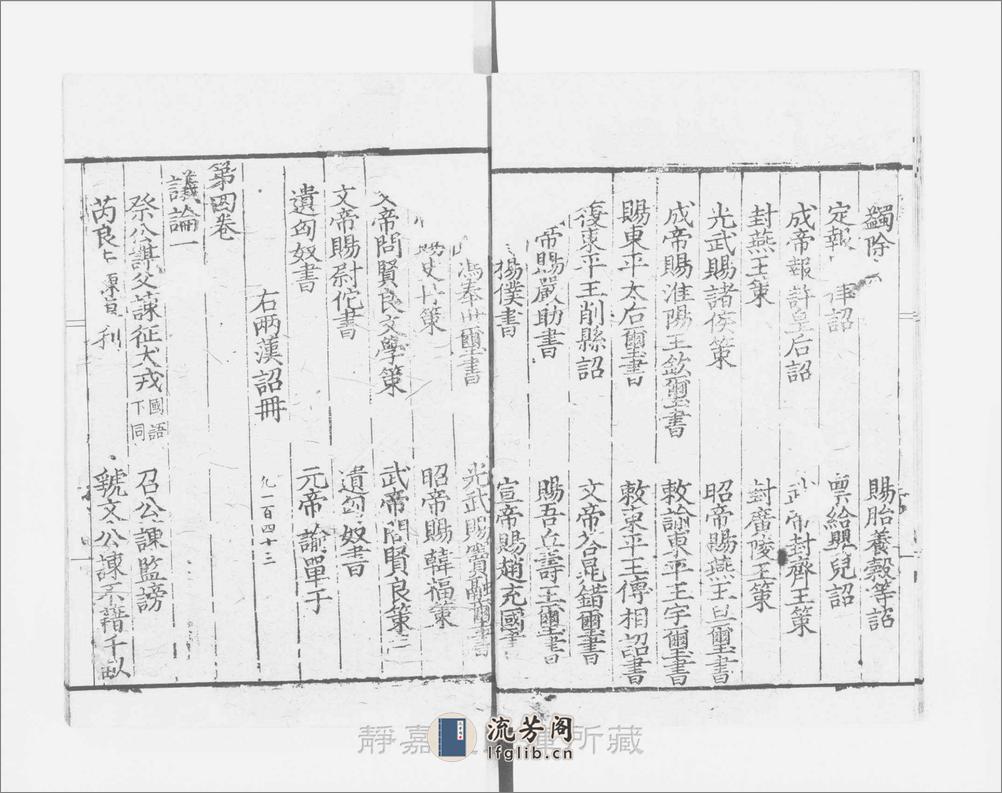 蠲除
賜胎養穀等詔
定報
律詔
稟給嬰兒詔
成帝報許皇后詔
帝封齊王策
封燕王策
封廣陵王策
光武賜諸侯策
昭帝賜燕王旦璽書
成帝賜淮陽王欽璽書
敕諭東平王宇璽書
賜東平太后璽書
敕東平王傅相詔書
復東平王削縣詔
文帝荅晁錯璽書
帝賜嚴助書
賜吾丘壽王璽書
楊僕書
宣帝賜趙充國書
馮奉世璽書
光武賜竇融璽書
策
昭帝賜韓福策
文帝問賢良文學策
武帝問賢良策三
文帝賜尉佗書
遺匈奴書
遺匈奴書
元帝諭單于
右兩漢詔冊
凡一百四十三
第四卷
議論一
祭公謀父諫征犬戎國語下同
召公諫監謗
芮良
利
虢文公諫不藉千畝
靜嘉
所藏
流芳阁
lfglib.cn